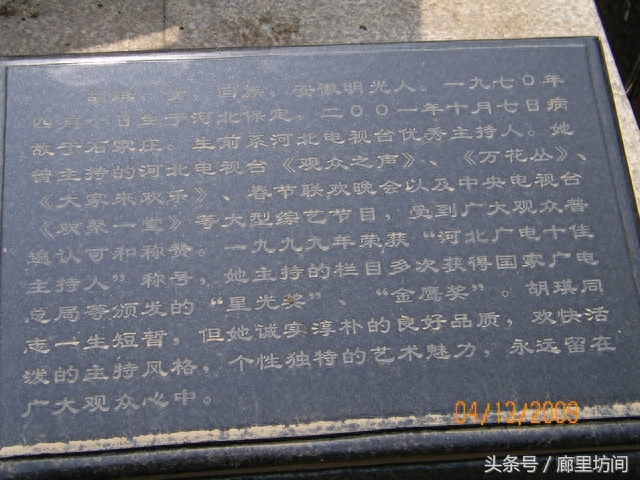 胡琪，女，回族，安徽明光人。一九七〇年
四月十日生于河北保定，二〇〇一年十月七日病
故于石家庄。生前系河北电视台优秀主持人。她
曾主持的河北电视台《观众之声》、《万花丛》、
《大家来欢乐》、春节联欢晚会以及中央电视台
《欢聚一堂》等大型综艺节目，受到广大观众普
遍认可和称赞。一九九九年荣获“河北广电十佳
主持人”称号，她主持的栏目多次获得国家广电
总局等颁发的“星光奖”、“金鹰奖”。胡琪同
志一生短暂，但她诚实淳朴的良好品质，欢快活
泼的主持风格，个性独特的艺术魅力，永远留在
广大观众心中。
04/13/2009
头条号／廊里坊间